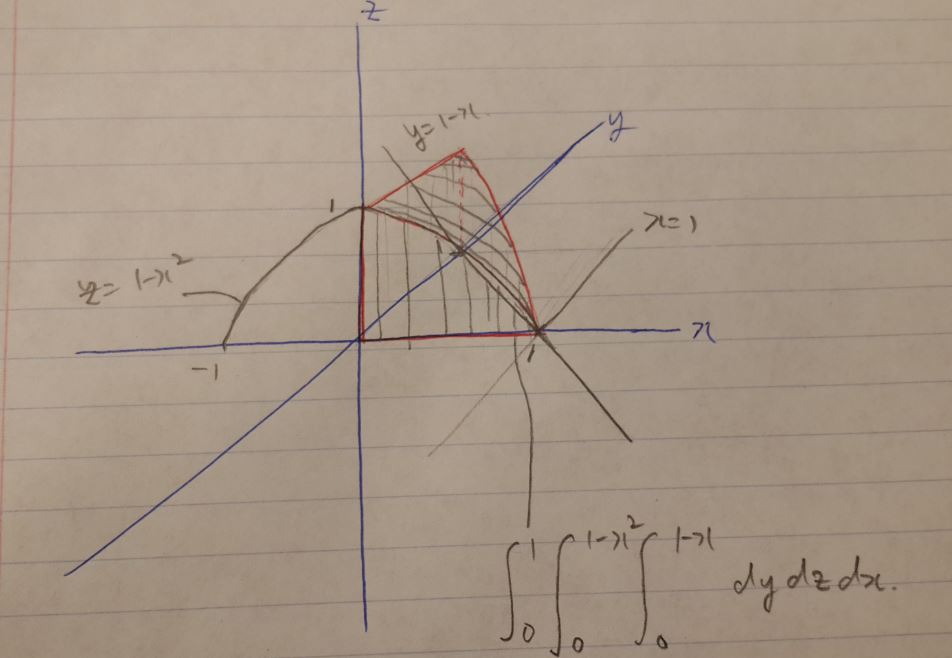 z
y
y=1-x
1
x=1
z=1-x²
1
x
-1
1
∫₀¹ ∫₀^{1-x²} ∫₀^{1-x} dy dz dx.